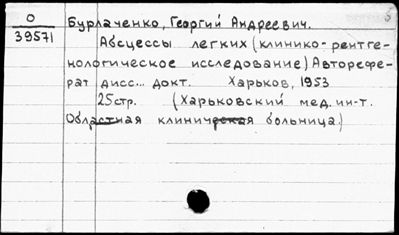 О
39571
Бурлаченко, Георгий Андреевич.
Абсцессы легких (клинико-рентге-
нологическое исследование) Авторефе-
рат дисс... докт. Харьков, 1953
25стр. (Харьковский мед. ин-т.
Областная клиническая больница.)